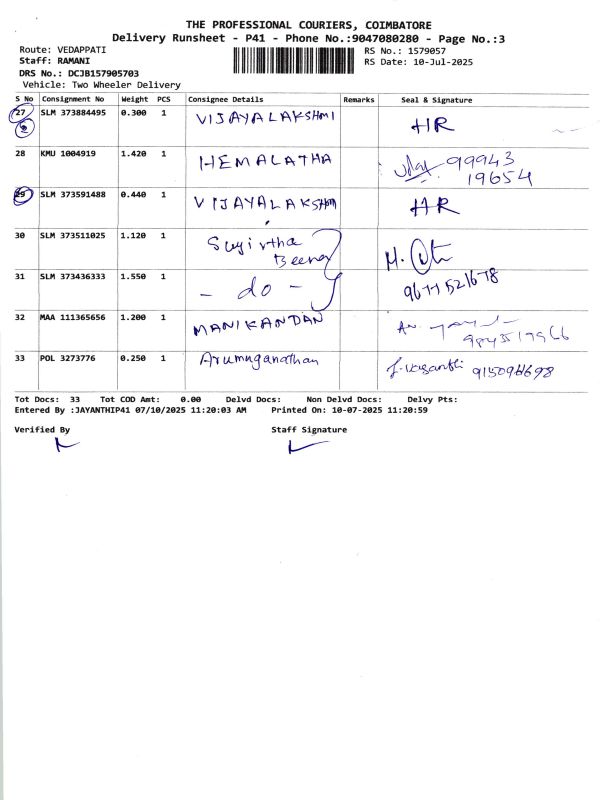 THE PROFESSIONAL COURIERS, COIMBATORE
Delivery Runsheet - P41 - Phone No.:9047080280 - Page No.:3
Route: VEDAPPATI
RS No.: 1579057
Staff: RAMANI
RS Date: 10-Jul-2025
DRS No.: DCJB157905703
Vehicle: Two Wheeler Delivery
S No Consignment No Weight PCS Consignee Details Remarks Seal & Signature
27 SLM 373884495 0.300 1 VIJAYALAKSHMI HR
28 KMU 1004919 1.420 1 HEMALATHA 99943
19654
29 SLM 373591488 0.440 1 VIJAYALAKSHMI HR
30 SLM 373511025 1.120 1 Sugirtha
Beena
31 SLM 373436333 1.550 1 - do -
32 MAA 111365656 1.200 1 MANIKANDAN
33 POL 3273776 0.250 1 Arumuganathan
Tot Docs: 33 Tot COD Amt: 0.00 Delvd Docs: Non Delvd Docs: Delvy Pts:
Entered By :JAYANTHIP41 07/10/2025 11:20:03 AM Printed On: 10-07-2025 11:20:59
Verified By Staff Signature